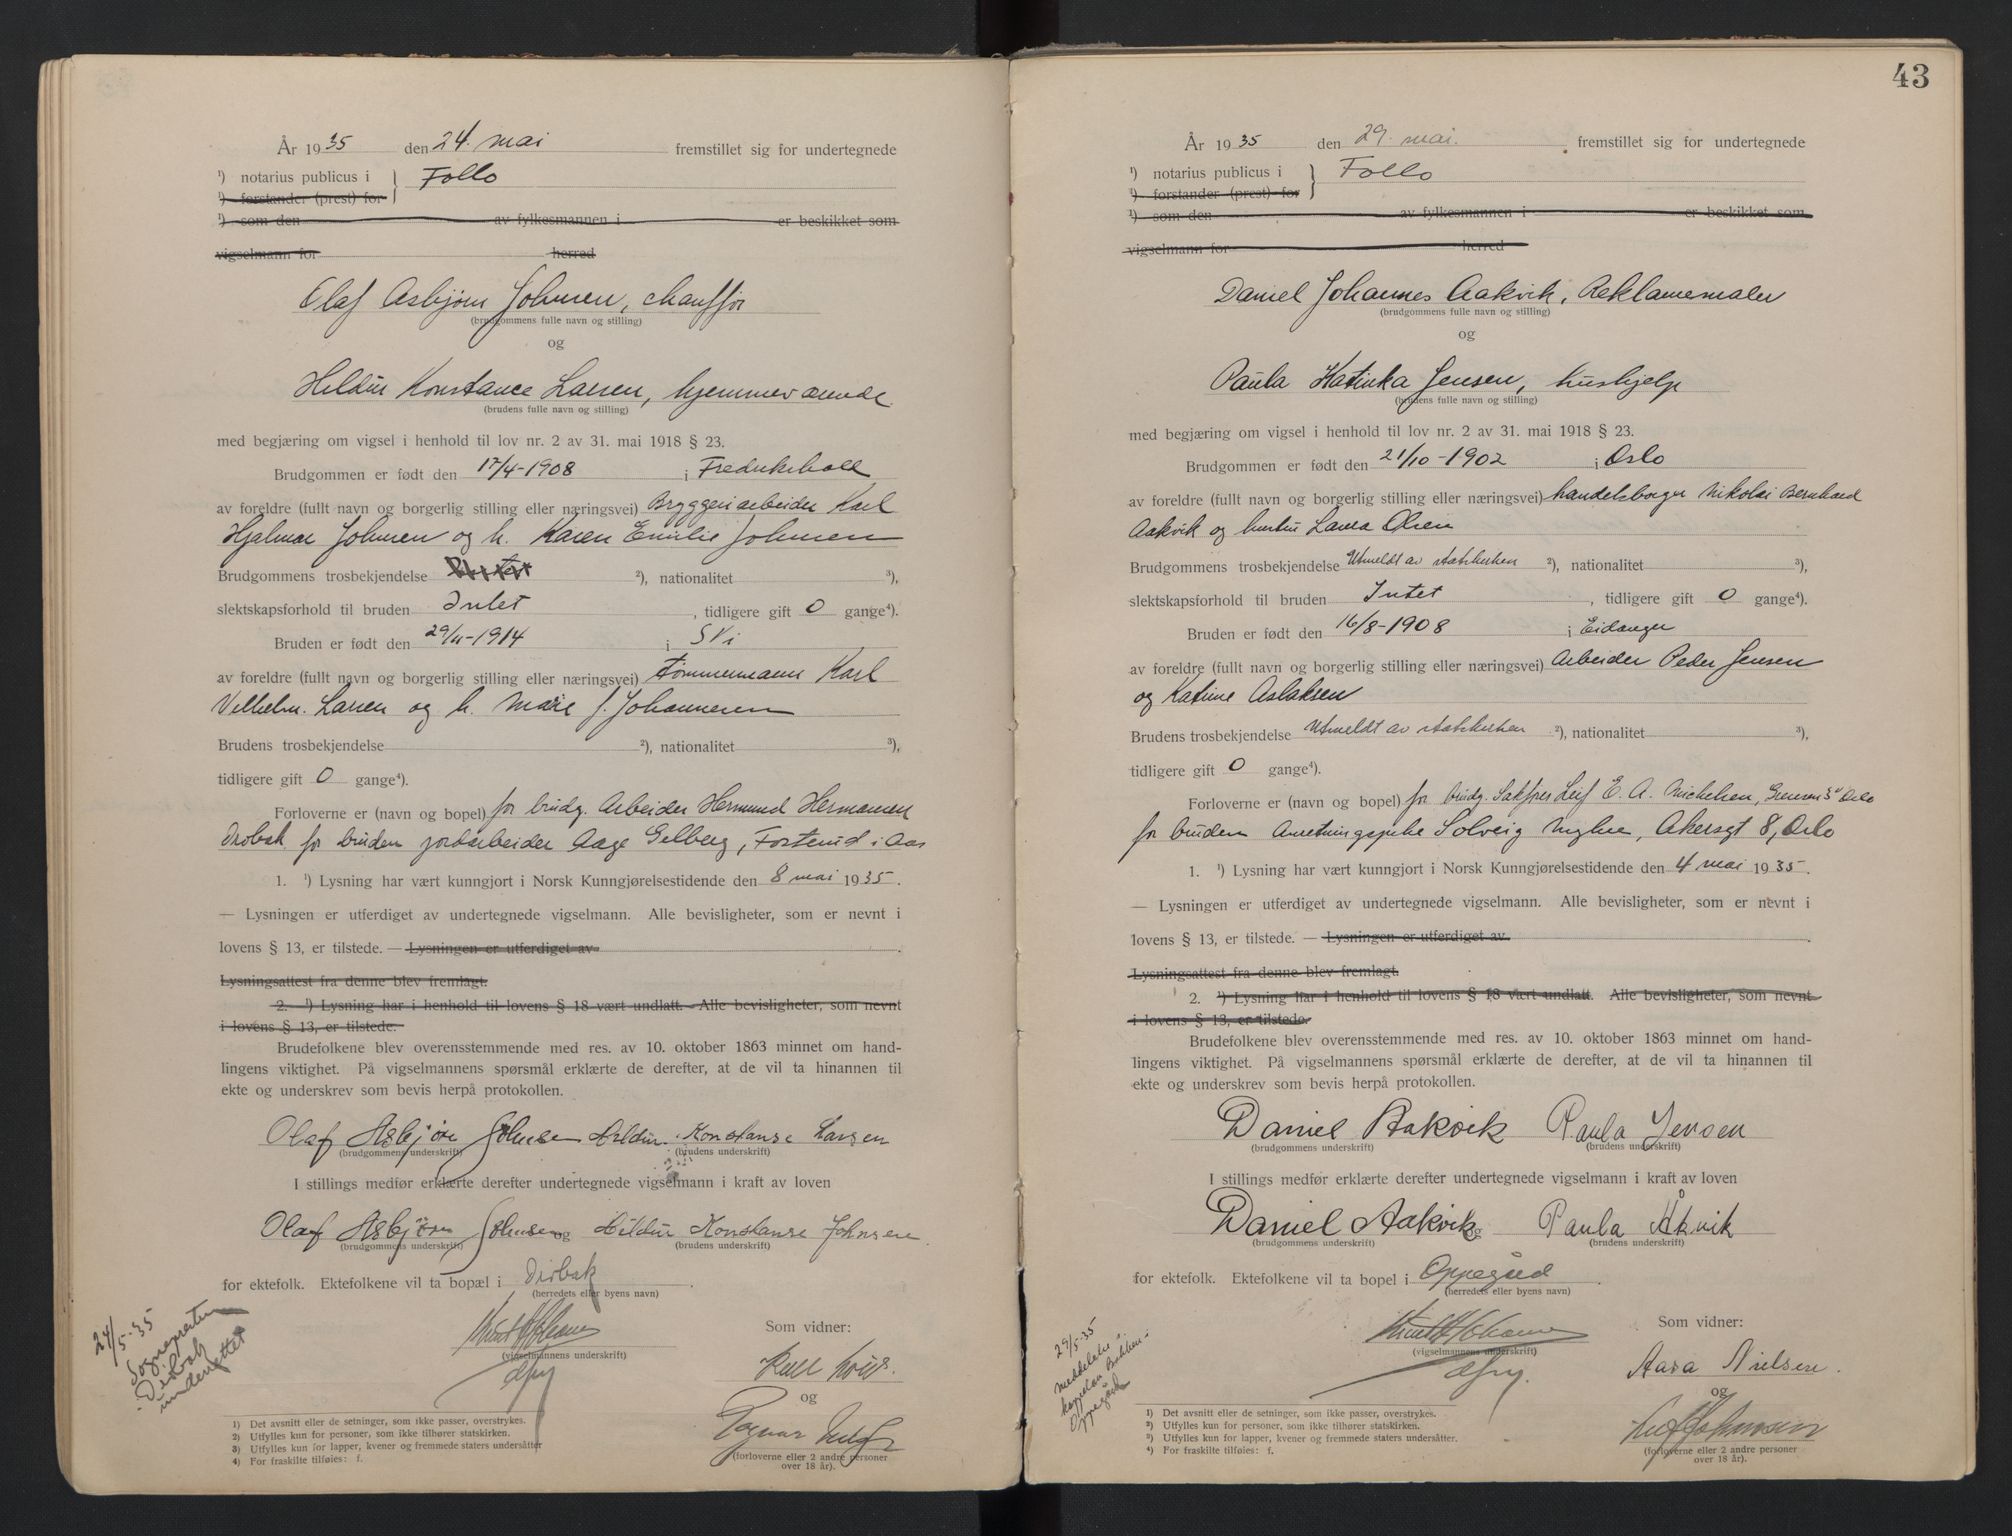 År 1935 den 24. mai fremstillet sig for undertegnede
¹) notarius publicus i } Follo
¹) forstander (prest) for
¹) som den av fylkesmannen i er beskikket som
vigselmann for herred
Olaf Asbjørn Johnsen, chauffør
(brudgommens fulle navn og stilling)
og
Hildur Konstance Larsen, hjemmeværende
(brudens fulle navn og stilling)
med begjæring om vigsel i henhold til lov nr. 2 av 31. mai 1918 § 23.
Brudgommen er født den 17/4-1908 i Fredrikshald
av foreldre (fullt navn og borgerlig stilling eller næringsvei) Bryggeriarbeider Karl
Hjalmar Johnsen og h. Karen Emilie Johnsen
Brudgommens trosbekjendelse ²), nationalitet ³),
slektskapsforhold til bruden Intet, tidligere gift 0 gange⁴).
Bruden er født den 29/11-1914 i Ski
av foreldre (fullt navn og borgerlig stilling eller næringsvei) tømmermann Karl
Vilhelm Larsen og h. Marie f. Johannesen
Brudens trosbekjendelse ²), nationalitet ³),
tidligere gift 0 gange⁴).
Forloverne er (navn og bopel) for brudg. Arbeider Hermund Hermansen
Drøbak for bruden jordarbeider Aage Gelberg, Fosterud i Aas
1. ¹) Lysning har vært kunngjort i Norsk Kunngjørelsestidende den 8 mai 1935.
— Lysningen er utferdiget av undertegnede vigselmann. Alle bevisligheter, som er nevnt i
lovens § 13, er tilstede. — Lysningen er utferdiget av
Lysningsattest fra denne blev fremlagt.
2. ¹) Lysning har i henhold til lovens § 18 vært undlatt. - Alle bevisligheter, som nevnt
i lovens § 13, er tilstede.
Brudefolkene blev overensstemmende med res. av 10. oktober 1863 minnet om hand-
lingens viktighet. På vigselmannens spørsmål erklærte de derefter, at de vil ta hinannen til
ekte og underskrev som bevis herpå protokollen.
Olaf Asbjørn Johnsen Hildur Konstanse Larsen
(brudgommens underskrift) (brudens underskrift)
I stillings medfør erklærte derefter undertegnede vigselmann i kraft av loven
Olaf Asbjørn Johnsen og Hildur Konstanse Johnsen
(brudgommens underskrift) (brudens underskrift)
for ektefolk. Ektefolkene vil ta bopæl i Drøbak
(herredets eller byens navn)
24/5-35
Sognepresten
Drøbak
underrettet
Som vidner:
(vigselmannens underskrift)
og
Ragnar
(forloverne eller 2 andre personer
over 18 år).
1) Det avsnitt eller de setninger, som ikke passer, overstrykes.
2) Utfylles kun for personer, som ikke tilhører statskirken.
3) Utfylles kun for lapper, kvener og fremmede staters undersåtter
4) For fraskilte tilføies: f.
43
År 1935 den 29. mai. fremstillet sig for undertegnede
¹) notarius publicus i } Follo
¹) forstander (prest) for
¹) som den av fylkesmannen i er beskikket som
vigselmann for herred
Daniel Johannes Aakvik, Reklamemaler
(brudgommens fulle navn og stilling)
og
Paula Katinka Jensen, hushjelp
(brudens fulle navn og stilling)
med begjæring om vigsel i henhold til lov nr. 2 av 31. mai 1918 § 23.
Brudgommen er født den 21/10-1902 i Oslo
av foreldre (fullt navn og borgerlig stilling eller næringsvei) handelsborger Nikolai Bernhard
Aakvik og hustru Laura Olsen
Brudgommens trosbekjendelse Utmeldt av statskirken ²), nationalitet ³),
slektskapsforhold til bruden Intet, tidligere gift 0 gange⁴).
Bruden er født den 16/8-1908 i Eidanger
av foreldre (fullt navn og borgerlig stilling eller næringsvei) Arbeider Peder Jensen
og Katrine Aslaksen
Brudens trosbekjendelse Utmeldt av statskirken ²), nationalitet ³),
tidligere gift 0 gange⁴).
Forloverne er (navn og bopel) for brudg. Sakfører Leif E. A. Michelsen, Grensen Oslo
for bruden Anretningspike Solveig Myhre, Akersgt 8, Oslo
1. ¹) Lysning har vært kunngjort i Norsk Kunngjørelsestidende den 4 mai 1935.
— Lysningen er utferdiget av undertegnede vigselmann. Alle bevisligheter, som er nevnt i
lovens § 13, er tilstede. — Lysningen er utferdiget av
Lysningsattest fra denne blev fremlagt.
2. ¹) Lysning har i henhold til lovens § 18 vært undlatt. Alle bevisligheter, som nevnt
i lovens § 13, er tilstede.
Brudefolkene blev overensstemmende med res. av 10. oktober 1863 minnet om hand-
lingens viktighet. På vigselmannens spørsmål erklærte de derefter, at de vil ta hinannen til
ekte og underskrev som bevis herpå protokollen.
Daniel Aakvik Paula Jensen
(brudgommens underskrift) (brudens underskrift)
I stillings medfør erklærte derefter undertegnede vigselmann i kraft av loven
Daniel Aakvik og Paula Åkvik
(brudgommens underskrift) (brudens underskrift)
for ektefolk. Ektefolkene vil ta bopel i Oppegård.
(herredets eller byens navn)
29/5-35
meddelelse
kappelan Bakken
Oppegård
Som vidner:
(vigselmannens underskrift)
Aasa Nielsen.
og
(forloverne eller 2 andre personer
over 18 år).
1) Det avsnitt eller de setninger, som ikke passer, overstrykes.
2) Utfylles kun for personer, som ikke tilhører statskirken.
3) Utfylles kun for lapper, kvener og fremmede staters undersåtter.
4) For fraskilte tilføies: f.